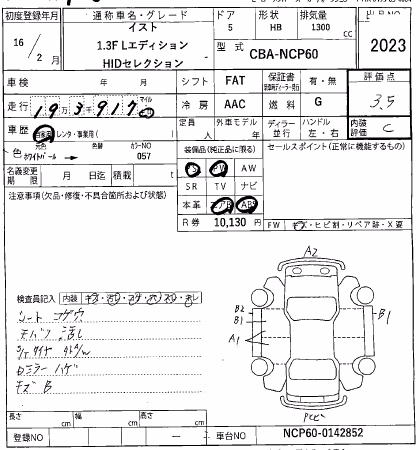 初度登録年月 通称車名・グレード ドア 形状 排気量
16年 2月 イスト 5 HB 1300 cc
1.3F Lエディション
HIDセレクション 型式 CBA-NCP60 2023
車検 年 月 シフト FAT 保証書 有・無 評価点
走行 19万3千917 マイル km 冷房 AAC 燃料 G 3.5
車歴 自家用 レンタ・事業用( ) 定員 人 外車モデル 年 ディーラー 並行 ハンドル 左・右 内装評価 C
色 元色 ホワイトパール → 色替 カラーNO 057 装備品(純正品に限る) セールスポイント(正常に機能するもの)
PS PW AW
名義変更期限 月 日迄 積載 t SR TV ナビ
注意事項(欠品・修復・不具合箇所および状態) 本革 エアB ABS
R券 10,130 円 FW キズ・ヒビ割・リペア跡・X要
A2
検査員記入 内装
B2
B1 B1
シート コゲ穴
A1
キズ B
長さ cm 幅 cm 高さ cm
登録NO — 車台NO NCP60-0142852